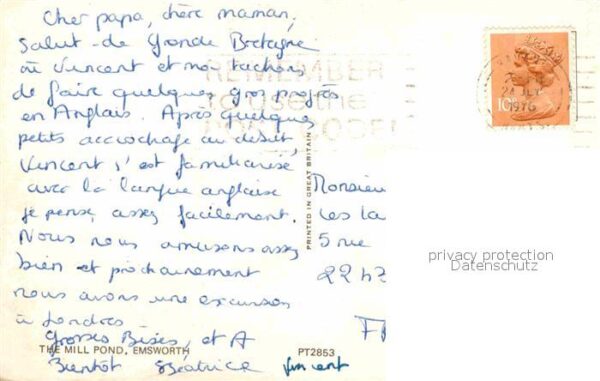 Cher papa, chère maman,
Salut de Grande Bretagne
où Vincent et moi tachons
de faire quelques gros progrès
en Anglais. Après quelques
petits accrochage au début,
Vincent s'est familiarisé
avec la langue anglaise
je pense assez facilement.
Nous nous amusons assez
bien et prochainement
nous avons une excursion
à Londres
Grosses Bises, et A
Bientôt Béatrice Vincent
THE MILL POND, EMSWORTH PT2853
PRINTED IN GREAT BRITAIN
REMEMBER
to use the
24 JLY
1976
10P
Monsieu
Les La
5 rue
privacy protection
Datenschutz